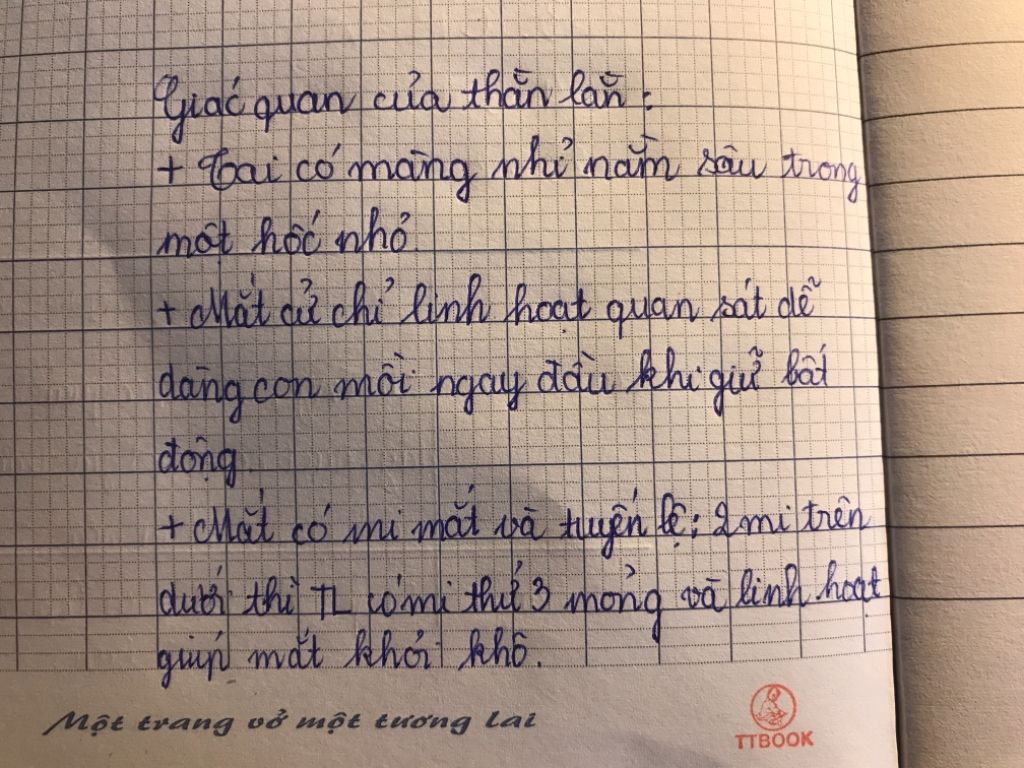 Giác quan của thằn lằn :
+ Tai có màng nhĩ nằm sâu trong
một hốc nhỏ.
+ Mắt cử chỉ linh hoạt quan sát dễ
dàng con mồi ngay đầu khi giữ bất
động.
+ Mắt có mi mắt và tuyến lệ; 2 mi trên
dưới thì TL có mi thứ 3 mỏng và linh hoạt
giúp mắt khỏi khô.
Một trang vở một tương lai
TTBOOK